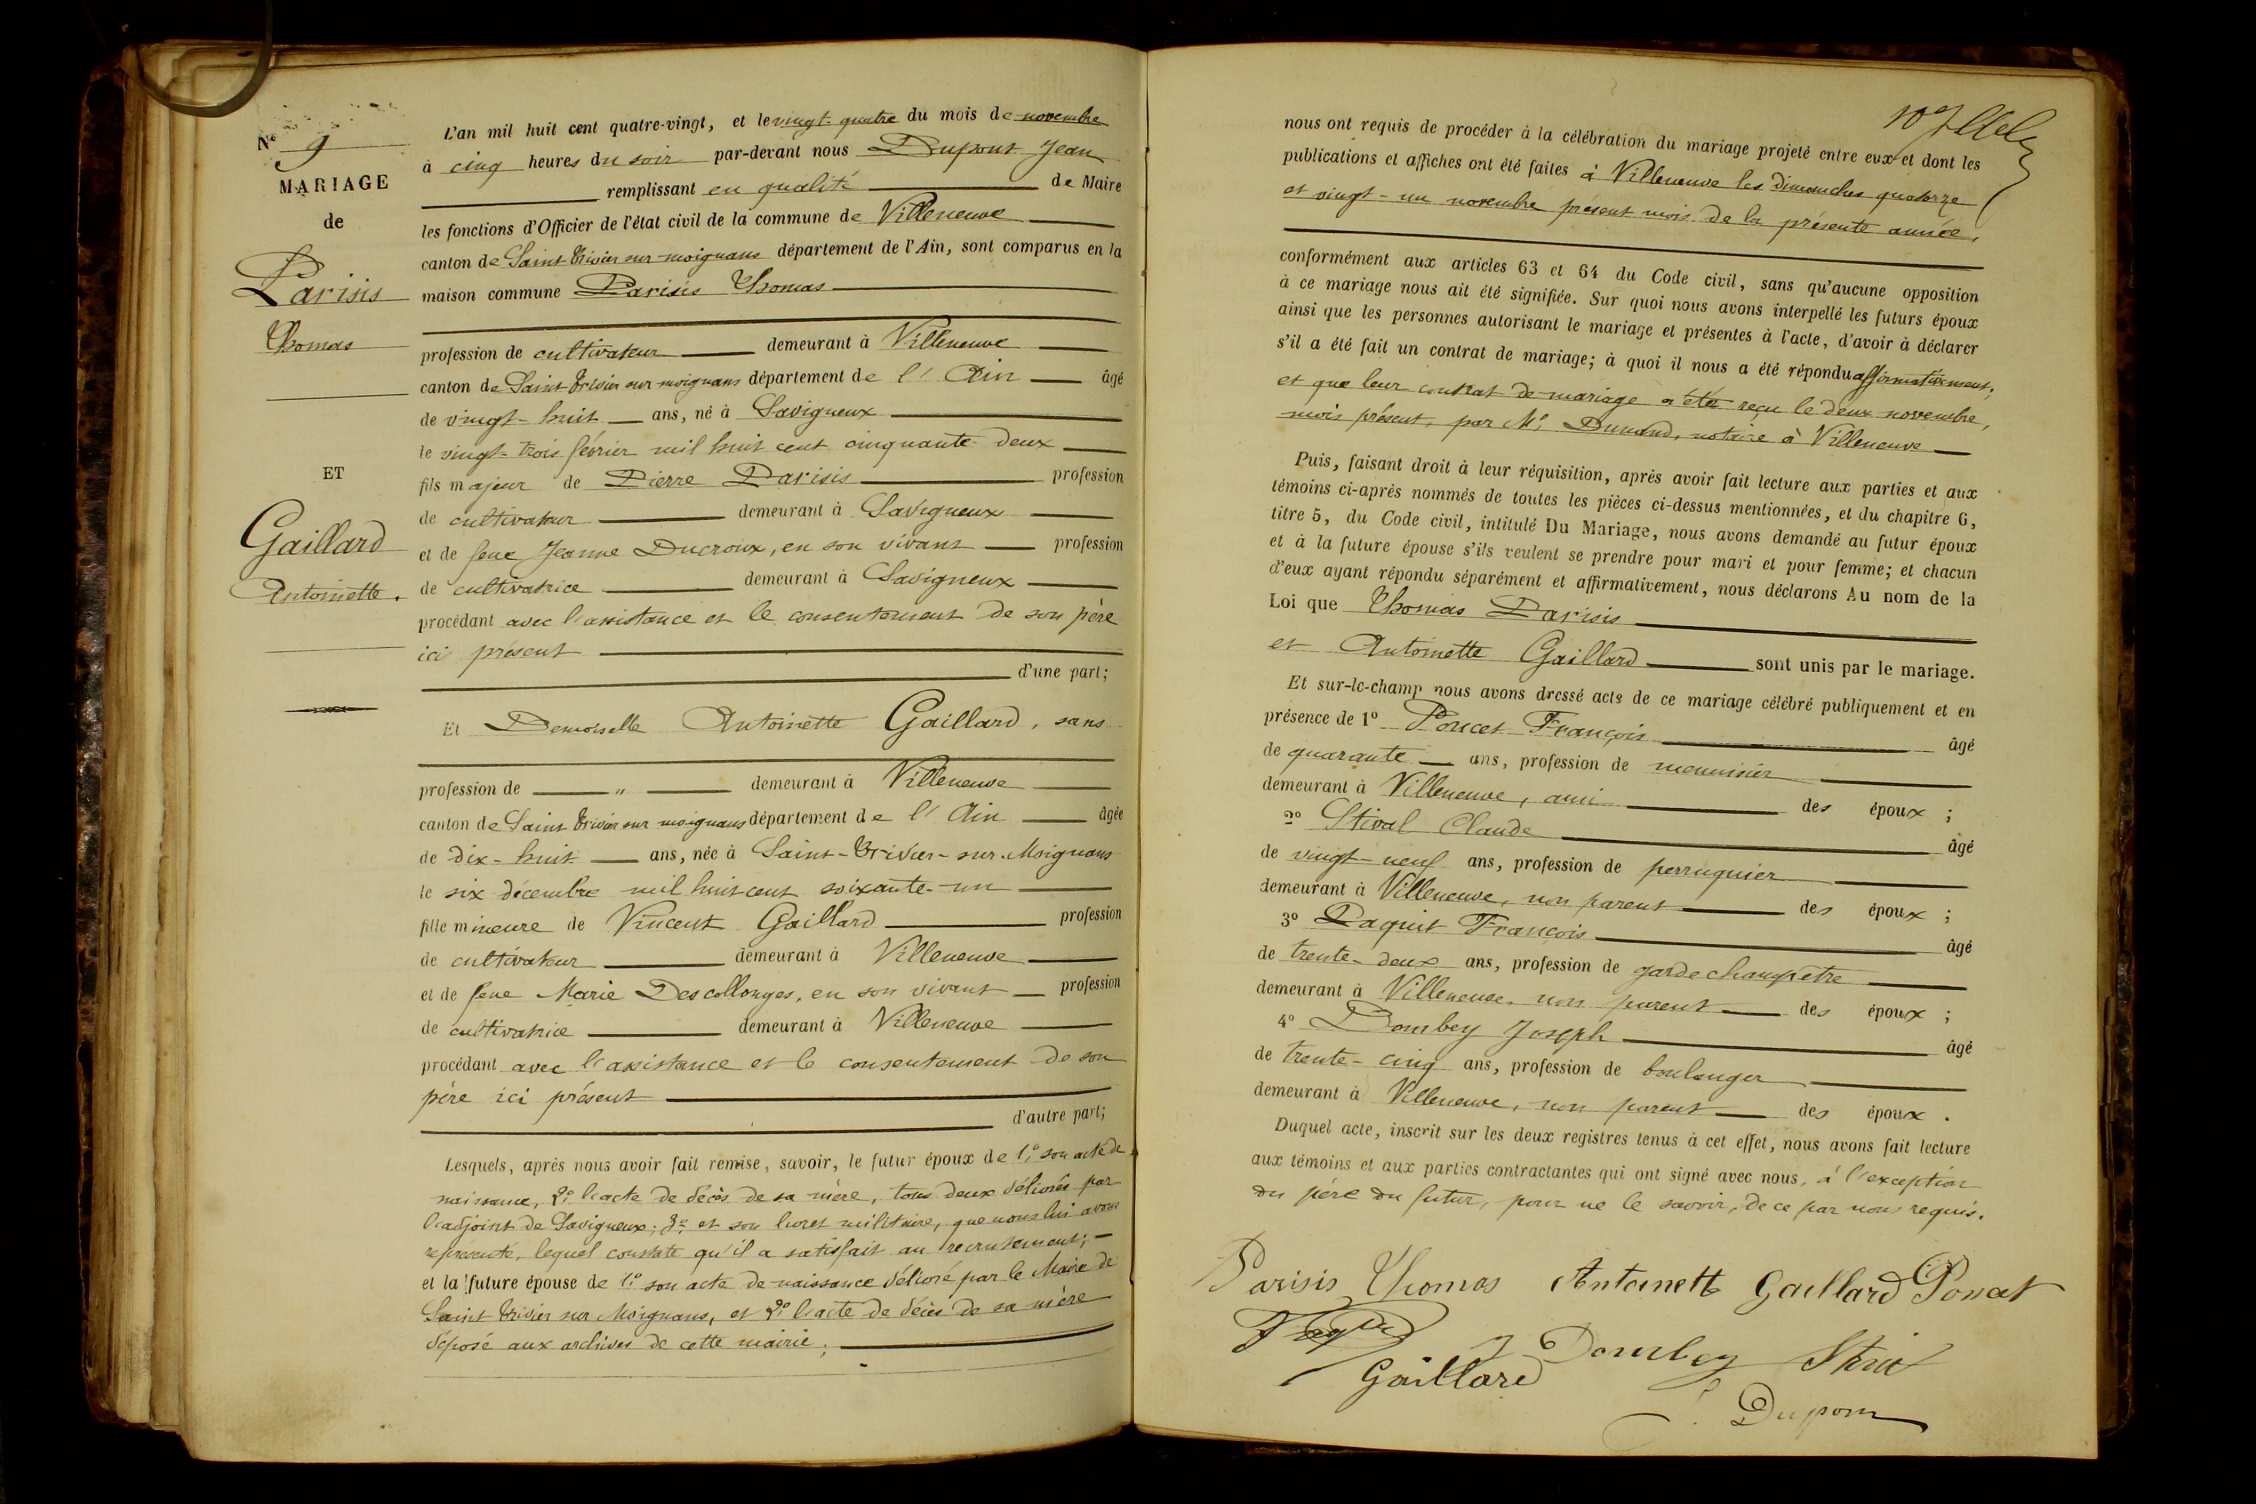 N° 9
MARIAGE
de
Parisis
Thomas
ET
Gaillard
Antoinette.
L'an mil huit cent quatre-vingt, et le vingt-quatre du mois de novembre
à cinq heures du soir par-devant nous Dupont Jean
remplissant en qualité de Maire
les fonctions d'Officier de l'état civil de la commune de Villeneuve
canton de Saint Trivier sur moignans département de l'Ain, sont comparus en la
maison commune Parisis Thomas
profession de cultivateur demeurant à Villeneuve
canton de Saint Trivier sur moignans département de l'Ain âgé
de vingt-huit ans, né à Savigneux
le vingt-trois février mil huit cent cinquante-deux
fils majeur de Pierre Parisis profession
de cultivateur demeurant à Savigneux
et de feue Jeanne Ducroux, en son vivant profession
de cultivatrice demeurant à Savigneux
procédant avec l'assistance et le consentement de son père
ici présent
d'une part;
Et Demoiselle Antoinette Gaillard, sans
profession de " demeurant à Villeneuve
canton de Saint Trivier sur moignans département de l'Ain âgée
de dix-huit ans, née à Saint-Trivier-sur-Moignans
le six décembre mil huit cent soixante-un
fille mineure de Vincent Gaillard profession
de cultivateur demeurant à Villeneuve
et de feue Marie Descollonges, en son vivant profession
de cultivatrice demeurant à Villeneuve
procédant avec l'assistance et le consentement de son
père ici présent
d'autre part;
Lesquels, après nous avoir fait remise, savoir, le futur époux de 1° son acte de
naissance, 2° l'acte de décès de sa mère, tous deux délivrés par
l'adjoint de Savigneux; 3° et son livret militaire, que nous lui avons
représenté, lequel constate qu'il a satisfait au recrutement;
et la future épouse de 1° son acte de naissance délivré par le Maire de
Saint Trivier sur Moignans, et 2° l'acte de décès de sa mère
déposé aux archives de cette mairie;
nous ont requis de procéder à la célébration du mariage projeté entre eux et dont les
publications et affiches ont été faites à Villeneuve les dimanches quatorze
et vingt-un novembre présent mois de la présente année,
conformément aux articles 63 et 64 du Code civil, sans qu'aucune opposition
à ce mariage nous ait été signifiée. Sur quoi nous avons interpellé les futurs époux
ainsi que les personnes autorisant le mariage et présentes à l'acte, d'avoir à déclarer
s'il a été fait un contrat de mariage; à quoi il nous a été répondu affirmativement,
et que leur contrat de mariage a été reçu le deux novembre,
mois présent, par Me Dunand, notaire à Villeneuve
Puis, faisant droit à leur réquisition, après avoir fait lecture aux parties et aux
témoins ci-après nommés de toutes les pièces ci-dessus mentionnées, et du chapitre 6,
titre 5, du Code civil, intitulé Du Mariage, nous avons demandé au futur époux
et à la future épouse s'ils veulent se prendre pour mari et pour femme; et chacun
d'eux ayant répondu séparément et affirmativement, nous déclarons Au nom de la
Loi que Thomas Parisis
et Antoinette Gaillard sont unis par le mariage.
Et sur-le-champ nous avons dressé acte de ce mariage célébré publiquement et en
présence de 1° Poncet François âgé
de quarante ans, profession de menuisier
demeurant à Villeneuve, ami des époux;
2° Stival Claude âgé
de vingt-neuf ans, profession de perruquier
demeurant à Villeneuve, non parent des époux;
3° Paquit François âgé
de trente-deux ans, profession de garde champêtre
demeurant à Villeneuve, non parent des époux;
4° Dombey Joseph âgé
de trente-cinq ans, profession de boulanger
demeurant à Villeneuve, non parent des époux.
Duquel acte, inscrit sur les deux registres tenus à cet effet, nous avons fait lecture
aux témoins et aux parties contractantes qui ont signé avec nous, à l'exception
du père du futur, pour ne le savoir, de ce par nous requis.
Parisis Thomas Antoinette Gaillard Poncet
J Dombey Stival
Gaillard
Dupont